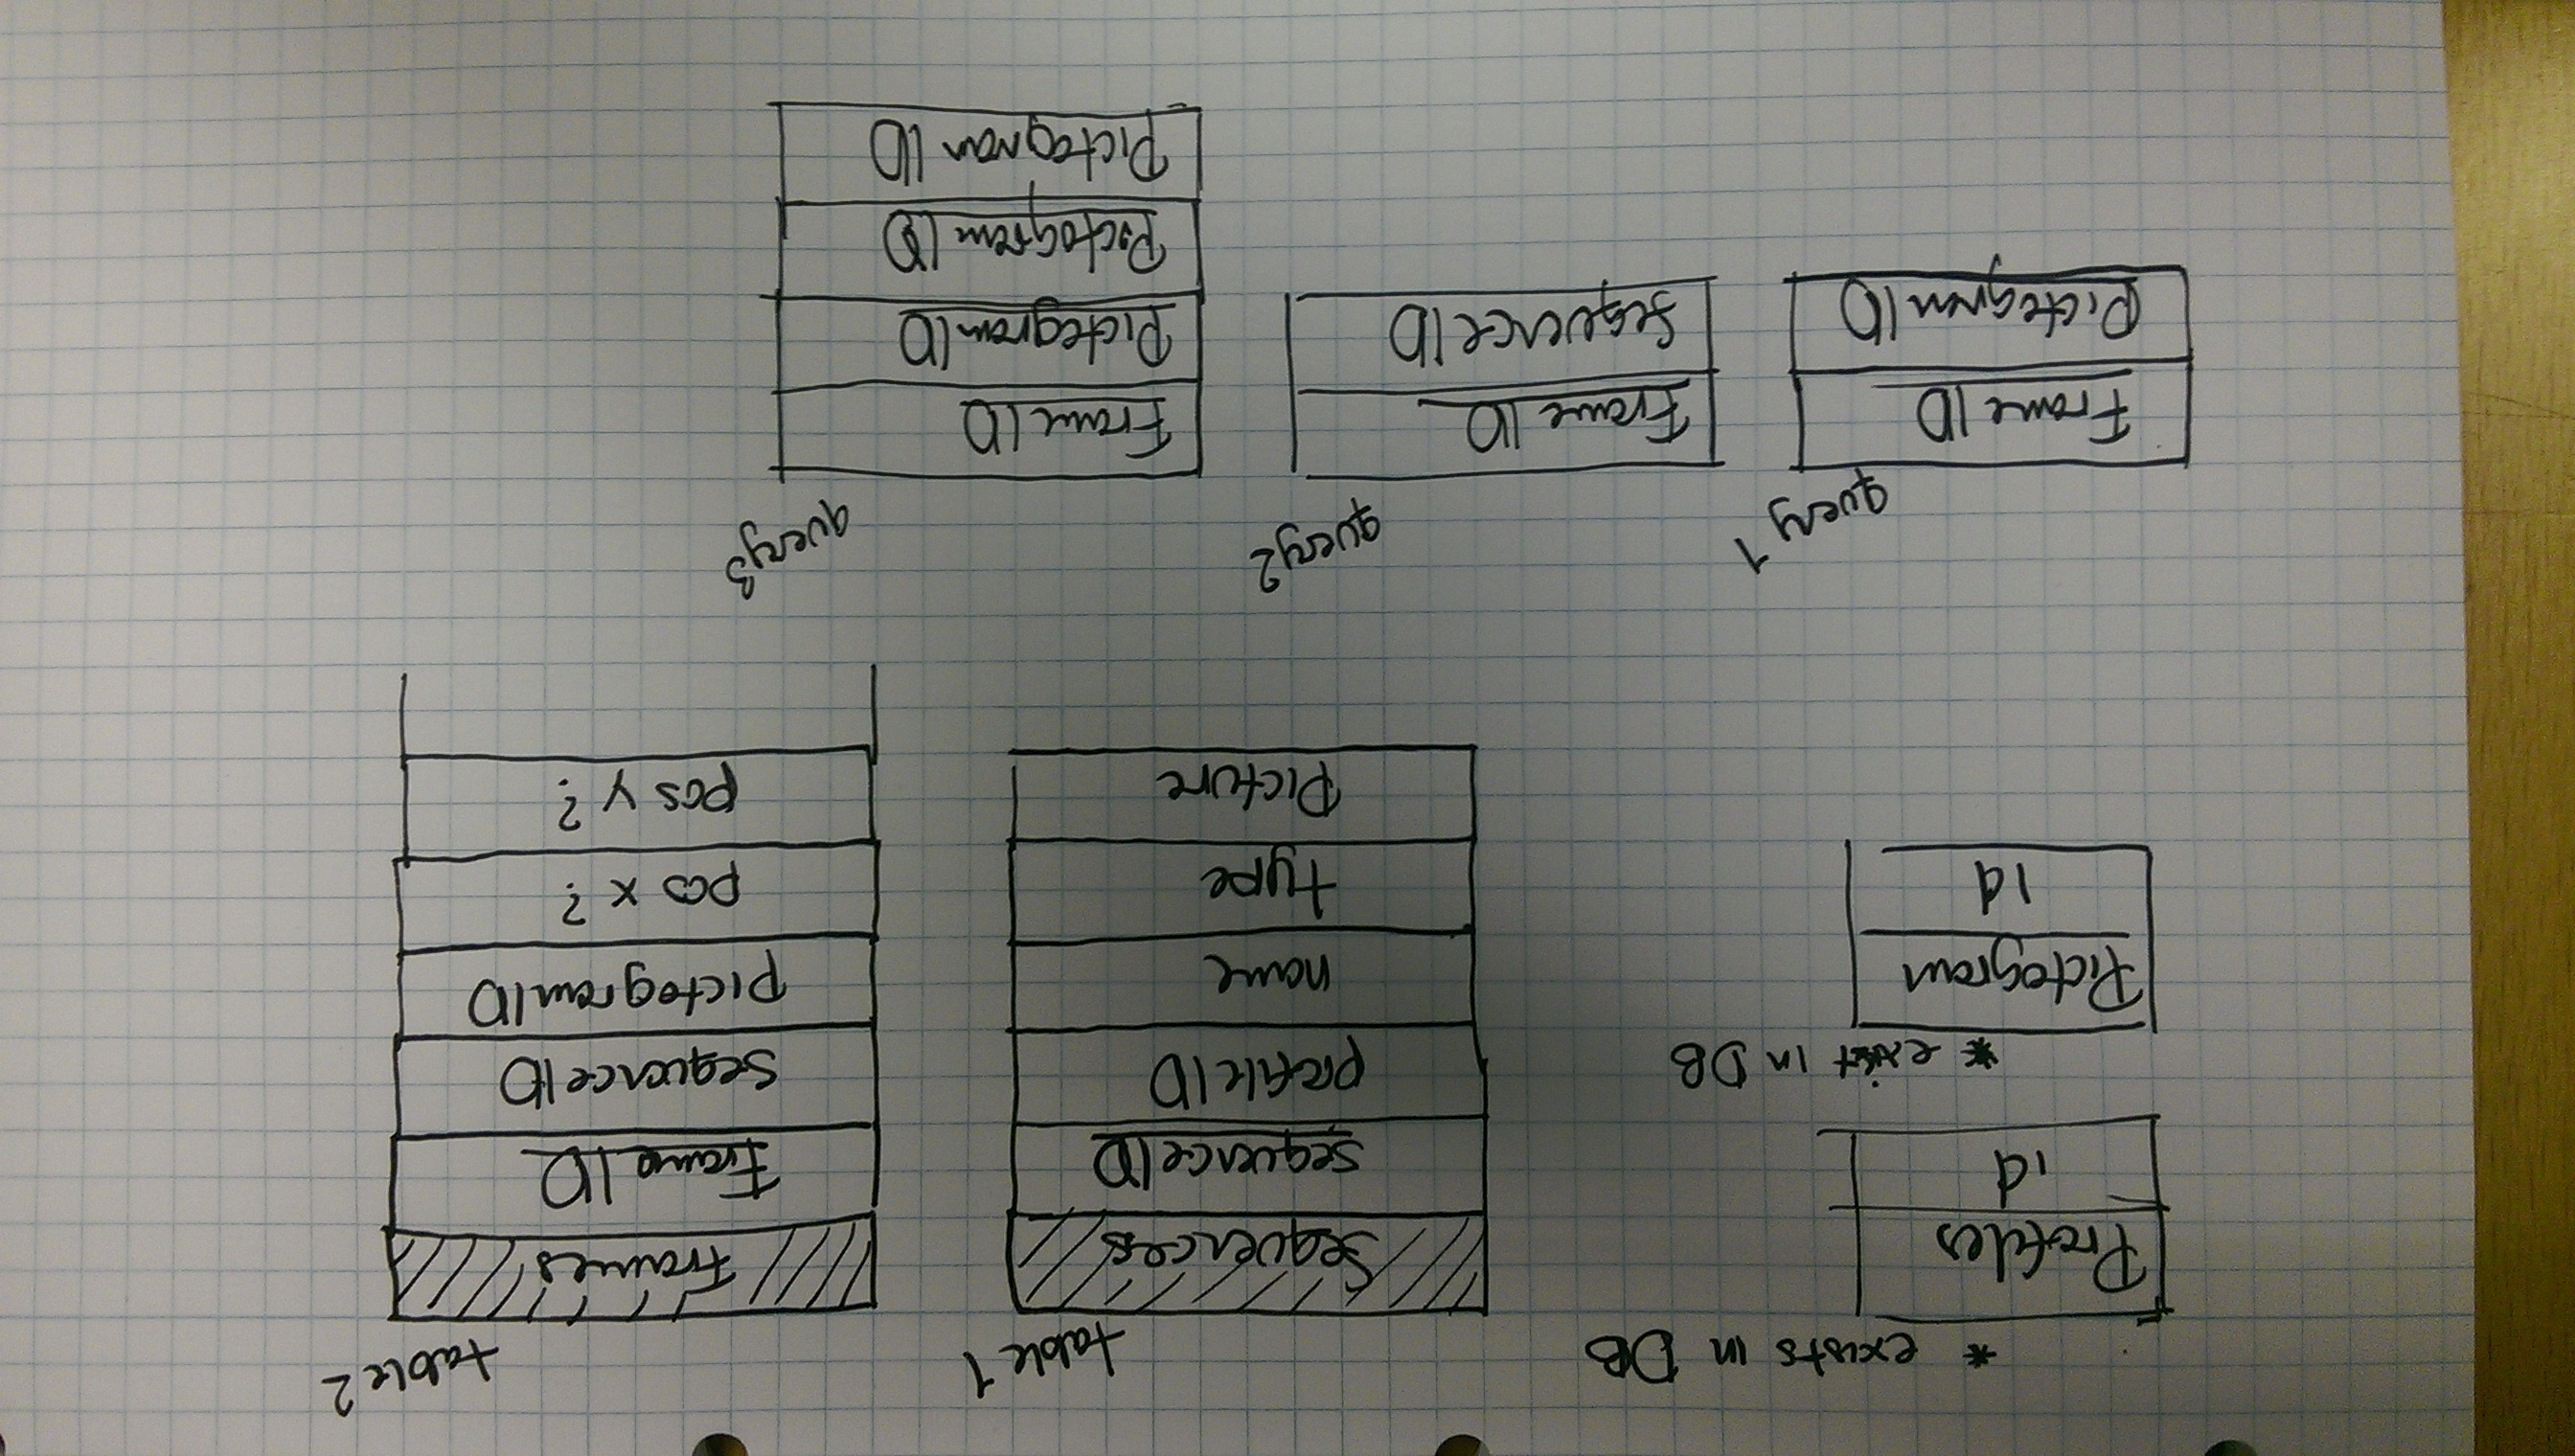 * exists in DB
Profiles
id
* exist in DB
Pictogram
id
table 1
Sequences
SequenceID
profileID
name
type
Picture
table 2
Frames
FrameID
SequenceID
PictogramID
pos x?
pos y?
query 1
Frame ID
Pictogram ID
query2
Frame ID
Sequence ID
query3
Frame ID
Pictogram ID
Pictogram ID
Pictogram ID